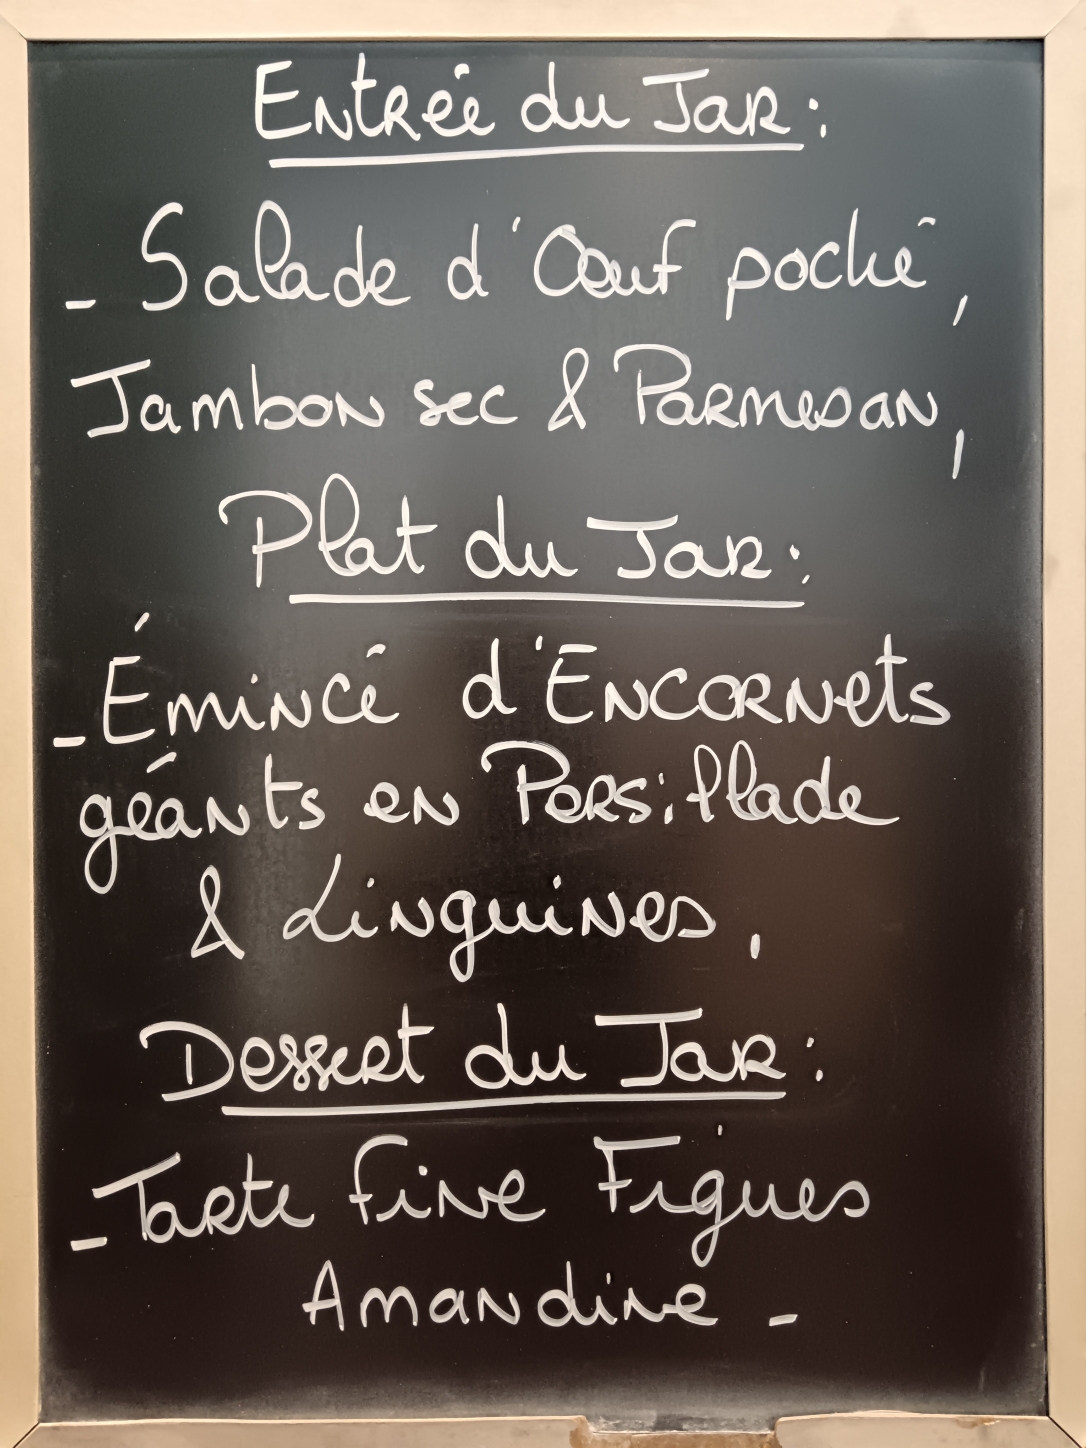 Entrée du Jar :
- Salade d'Oeuf poché,
Jambon sec & Parmesan,
Plat du Jar :
- Émincé d'Encornets
géants en Persillade
& Linguines,
Dessert du Jar :
- Tarte fine Figues
Amandine -